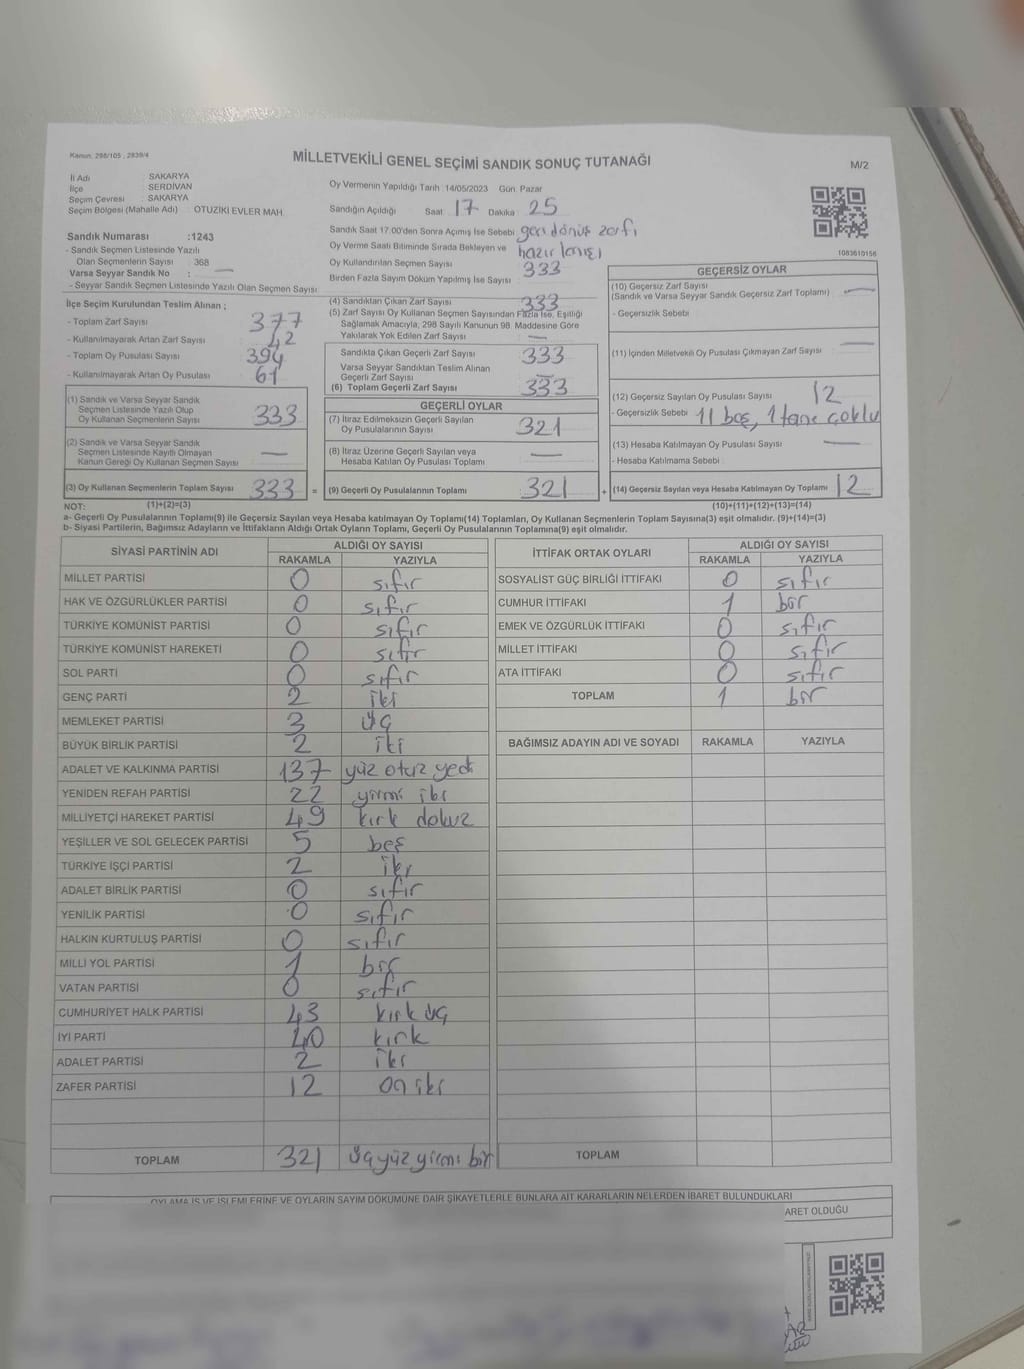 Kanun. 298/105 , 2839/4
MİLLETVEKİLİ GENEL SEÇİMİ SANDIK SONUÇ TUTANAĞI
M/2
İl Adı : SAKARYA
İlçe : SERDİVAN
Seçim Çevresi : SAKARYA
Seçim Bölgesi (Mahalle Adı) : OTUZİKİ EVLER MAH.
Oy Vermenin Yapıldığı Tarih :14/05/2023 Gün: Pazar
Sandığın Açıldığı Saat 17 Dakika 25
Sandık Saat 17.00'den Sonra Açımış İse Sebebi geri dönüş zarfı
Oy Verme Saati Bitiminde Sırada Bekleyen ve hazırlanışı
Oy Kullandırılan Seçmen Sayısı 333
Birden Fazla Sayım Döküm Yapılmış İse Sayısı
1083610156
Sandık Numarası :1243
- Sandık Seçmen Listesinde Yazılı
Olan Seçmenlerin Sayısı : 368
Varsa Seyyar Sandık No : —
- Seyyar Sandık Seçmen Listesinde Yazılı Olan Seçmen Sayısı
İlçe Seçim Kurulundan Teslim Alınan ;
- Toplam Zarf Sayısı 377
- Kullanılmayarak Artan Zarf Sayısı 42
- Toplam Oy Pusulası Sayısı 394
- Kullanılmayarak Artan Oy Pusulası 61
(1) Sandık ve Varsa Seyyar Sandık
Seçmen Listesinde Yazılı Olup
Oy Kullanan Seçmenlerin Sayısı 333
(2) Sandık ve Varsa Seyyar Sandık
Seçmen Listesinde Kayıtlı Olmayan
Kanun Gereği Oy Kullanan Seçmen Sayısı —
(3) Oy Kullanan Seçmenlerin Toplam Sayısı 333 =
(4) Sandıktan Çıkan Zarf Sayısı 333
(5) Zarf Sayısı Oy Kullanan Seçmen Sayısından Fazla İse, Eşitliği
Sağlamak Amacıyla, 298 Sayılı Kanunun 98. Maddesine Göre
Yakılarak Yok Edilen Zarf Sayısı —
Sandıkta Çıkan Geçerli Zarf Sayısı 333
Varsa Seyyar Sandıktan Teslim Alınan
Geçerli Zarf Sayısı —
(6) Toplam Geçerli Zarf Sayısı 333
GEÇERLİ OYLAR
(7) İtiraz Edilmeksizin Geçerli Sayılan
Oy Pusulalarının Sayısı 321
(8) İtiraz Üzerine Geçerli Sayılan veya
Hesaba Katılan Oy Pusulası Toplamı —
(9) Geçerli Oy Pusulalarının Toplamı 321 +
GEÇERSİZ OYLAR
(10) Geçersiz Zarf Sayısı
(Sandık ve Varsa Seyyar Sandık Geçersiz Zarf Toplamı) —
- Geçersizlik Sebebi
(11) İçinden Milletvekili Oy Pusulası Çıkmayan Zarf Sayısı —
(12) Geçersiz Sayılan Oy Pusulası Sayısı 12
- Geçersizlik Sebebi 11 boş, 1 tane çoklu
(13) Hesaba Katılmayan Oy Pusulası Sayısı —
- Hesaba Katılmama Sebebi
(14) Geçersiz Sayılan veya Hesaba Katılmayan Oy Toplamı 12
NOT: (1)+(2)=(3) (10)+(11)+(12)+(13)=(14)
a- Geçerli Oy Pusulalarının Toplamı(9) ile Geçersiz Sayılan veya Hesaba katılmayan Oy Toplamı(14) Toplamları, Oy Kullanan Seçmenlerin Toplam Sayısına(3) eşit olmalıdır. (9)+(14)=(3)
b- Siyasi Partilerin, Bağımsız Adayların ve İttifakların Aldığı Ortak Oyların Toplamı, Geçerli Oy Pusulalarının Toplamına(9) eşit olmalıdır.
SİYASİ PARTİNİN ADI ALDIĞI OY SAYISI
RAKAMLA YAZIYLA
MİLLET PARTİSİ 0 sıfır
HAK VE ÖZGÜRLÜKLER PARTİSİ 0 sıfır
TÜRKİYE KOMÜNİST PARTİSİ 0 sıfır
TÜRKİYE KOMÜNİST HAREKETİ 0 sıfır
SOL PARTİ 0 sıfır
GENÇ PARTİ 2 iki
MEMLEKET PARTİSİ 3 üç
BÜYÜK BİRLİK PARTİSİ 2 iki
ADALET VE KALKINMA PARTİSİ 137 yüz otuz yedi
YENİDEN REFAH PARTİSİ 22 yirmi iki
MİLLİYETÇİ HAREKET PARTİSİ 49 kırk dokuz
YEŞİLLER VE SOL GELECEK PARTİSİ 5 beş
TÜRKİYE İŞÇİ PARTİSİ 2 iki
ADALET BİRLİK PARTİSİ 0 sıfır
YENİLİK PARTİSİ 0 sıfır
HALKIN KURTULUŞ PARTİSİ 0 sıfır
MİLLİ YOL PARTİSİ 1 bir
VATAN PARTİSİ 0 sıfır
CUMHURİYET HALK PARTİSİ 43 kırk üç
İYİ PARTİ 40 kırk
ADALET PARTİSİ 2 iki
ZAFER PARTİSİ 12 on iki
TOPLAM 321 üçyüz yirmi bir
İTTİFAK ORTAK OYLARI ALDIĞI OY SAYISI
RAKAMLA YAZIYLA
SOSYALİST GÜÇ BİRLİĞİ İTTİFAKI 0 sıfır
CUMHUR İTTİFAKI 1 bir
EMEK VE ÖZGÜRLÜK İTTİFAKI 0 sıfır
MİLLET İTTİFAKI 0 sıfır
ATA İTTİFAKI 0 sıfır
TOPLAM 1 bir
BAĞIMSIZ ADAYIN ADI VE SOYADI RAKAMLA YAZIYLA
TOPLAM
OYLAMA İŞ VE İŞLEMLERİNE VE OYLARIN SAYIM DÖKÜMÜNE DAİR ŞİKAYETLERLE BUNLARA AİT KARARLARIN NELERDEN İBARET BULUNDUKLARI
ARET OLDUĞU